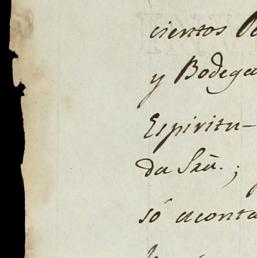 cientos
y Bodega
Espiritu-
da Sãu.;
só aconta